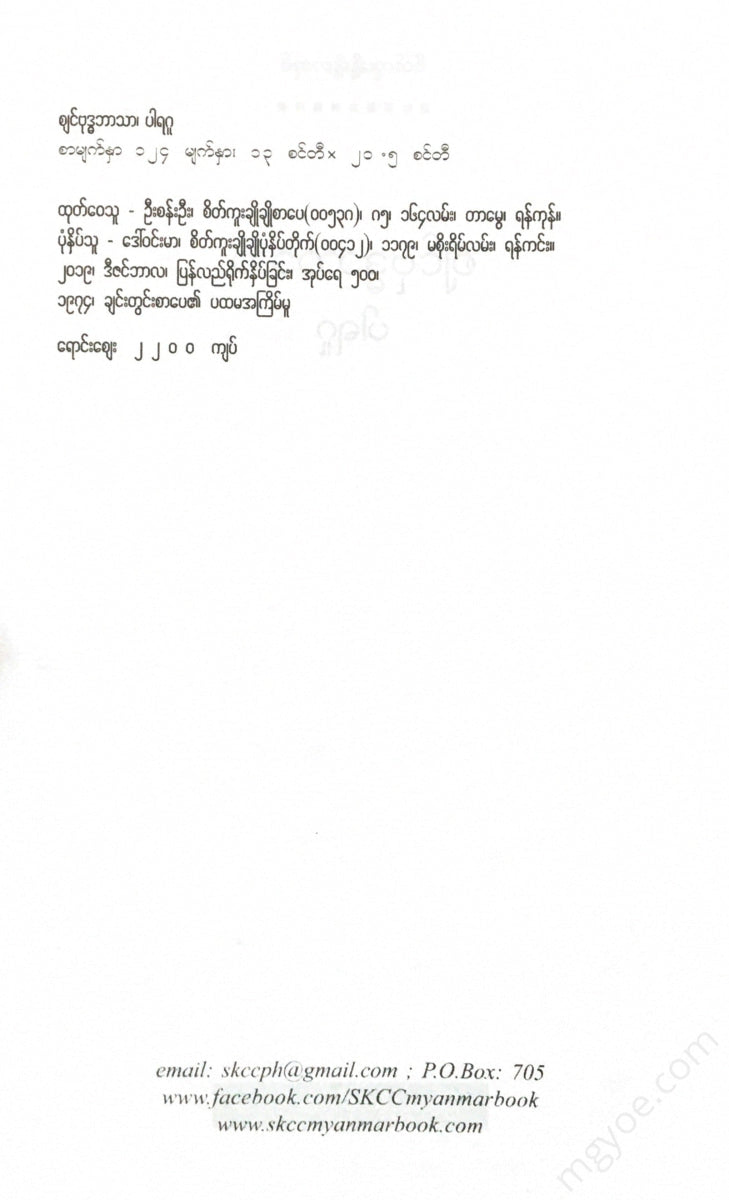 ဈျင်ဗုဒ္ဓဘာသာ၊ ပါရဂူ
စာမျက်နှာ ၁၂၄ မျက်နှာ၊ ၁၃ စင်တီ× ၂၁ .၅ စင်တီ
ထုတ်ဝေသူ - ဦးစန်းဦး၊ စိတ်ကူးချိုချိုစာပေ(၀၀၅၃၈)၊ ၈၅၊ ၁၆၄လမ်း၊ တာမွေ၊ ရန်ကုန်။
ပုံနှိပ်သူ - ဒေါ်ဝင်းမာ၊ စိတ်ကူးချိုချိုပုံနှိပ်တိုက်(၀၀၄၁၂)၊ ၁၁၇၉၊ မစိုးရိမ်လမ်း၊ ရန်ကင်း။
၂၀၁၉၊ ဒီဇင်ဘာလ၊ ပြန်လည်ရိုက်နှိပ်ခြင်း၊ အုပ်ရေ ၅၀၀၊
၁၉၇၄၊ ချင်းတွင်းစာပေ၏ ပထမအကြိမ်မူ
ရောင်းဈေး ၂ ၂ ၀ ၀ ကျပ်
email: skccph@gmail.com ; P.O.Box: 705
www.facebook.com/SKCCmyanmarbook
www.skccmyanmarbook.com
mgyoe.com